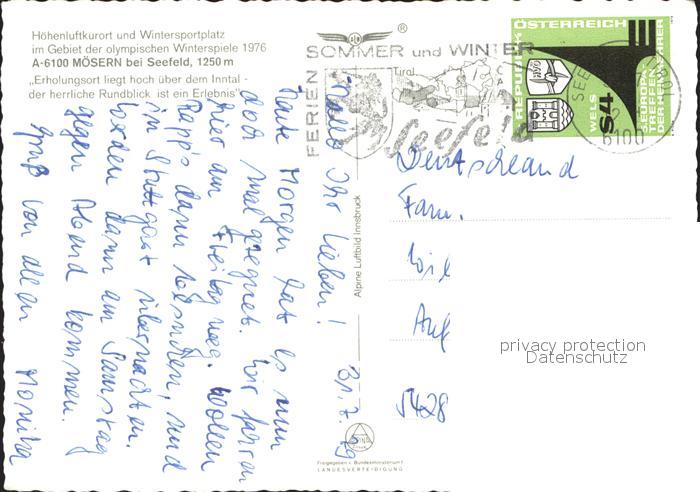 Höhenluftkurort und Wintersportplatz
im Gebiet der olympischen Winterspiele 1976
A-6100 MÖSERN bei Seefeld, 1250 m
„Erholungsort liegt hoch über dem Inntal -
der herrliche Rundblick ist ein Erlebnis"
®
SOMMER und WINTER
FERIEN
Tirol
Seefeld
REPUBLIK ÖSTERREICH
S4
WELS
5. EUROPA-
TREFFEN
DER FERNFAHRER
6100
Hallo Ihr Lieben!
31.7.79
Heute Morgen hat es nun
doch mal geregnet. Wir fahren
hier am Freitag weg. Wollen
Rapp's dann besuchen, und
in Stuttgart übernachten.
Werden dann am Samstag
gegen Abend kommen.
Gruß von allen Monika
Alpine Luftbild Innsbruck
Freigegeben v. Bundesministerium f.
LANDESVERTEIDIGUNG
Deutschland
Fam.
Auf
5428
privacy protection
Datenschutz